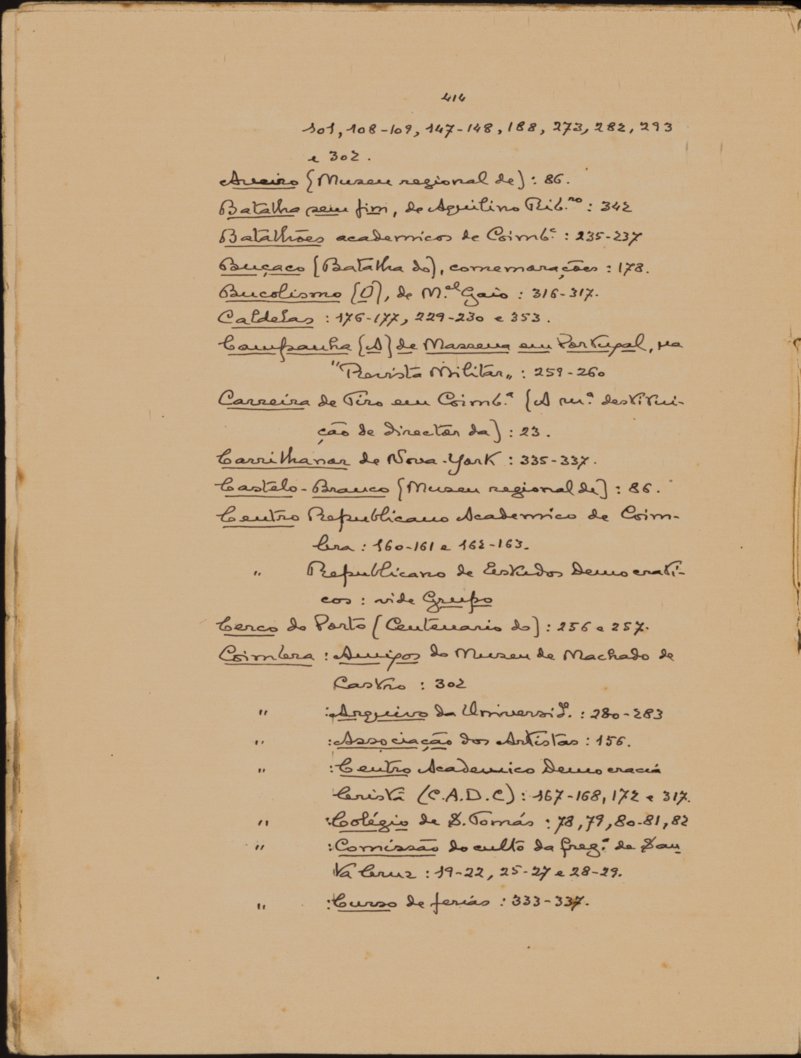 414
101, 108-109, 147-148, 188, 273, 282, 293
e 302.
Aveiro (Museu regional de): 86.
Batalha sem fim, de Aquilino Rib.ro : 342
Batalhões academicos de Coimb.ª : 235-237
Buçaco (Batalha do), comemorações : 178.
Bucolismo (O), de M.el Gaio : 316-317.
Caldelas : 176-177, 229-230 e 353.
Campanha (A) de Massena em Portugal, na
"Revista Militar„ : 259-260
Carreira de Tiro em Coimb.ª (A m.ª destitui-
ção de director da) : 23.
Carrilhanor de Nova-York : 335-337.
Castelo-Branco (Museu regional de) : 86.
Centro Republicano Academico de Coim-
bra : 160-161 e 162-163.
" Republicano de Estudos Democrati-
cos : vide Grupo
Cerco do Porto (Centenario do) : 256 e 257.
Coimbra : Amigos do Museu de Machado de
Castro : 302
" : Arquivo da Universid. : 280-283
" : Associação dos Artistas : 156.
" : Centro Academico Democracia
Cristã (C.A.D.C) : 167-168, 172 e 317.
" : Colégio de S. Tomás : 78, 79, 80-81, 82
" : Comissão do culto da freg.ª de San
ta Cruz : 19-22, 25-27 e 28-29.
" : Curso de ferias : 333-337.